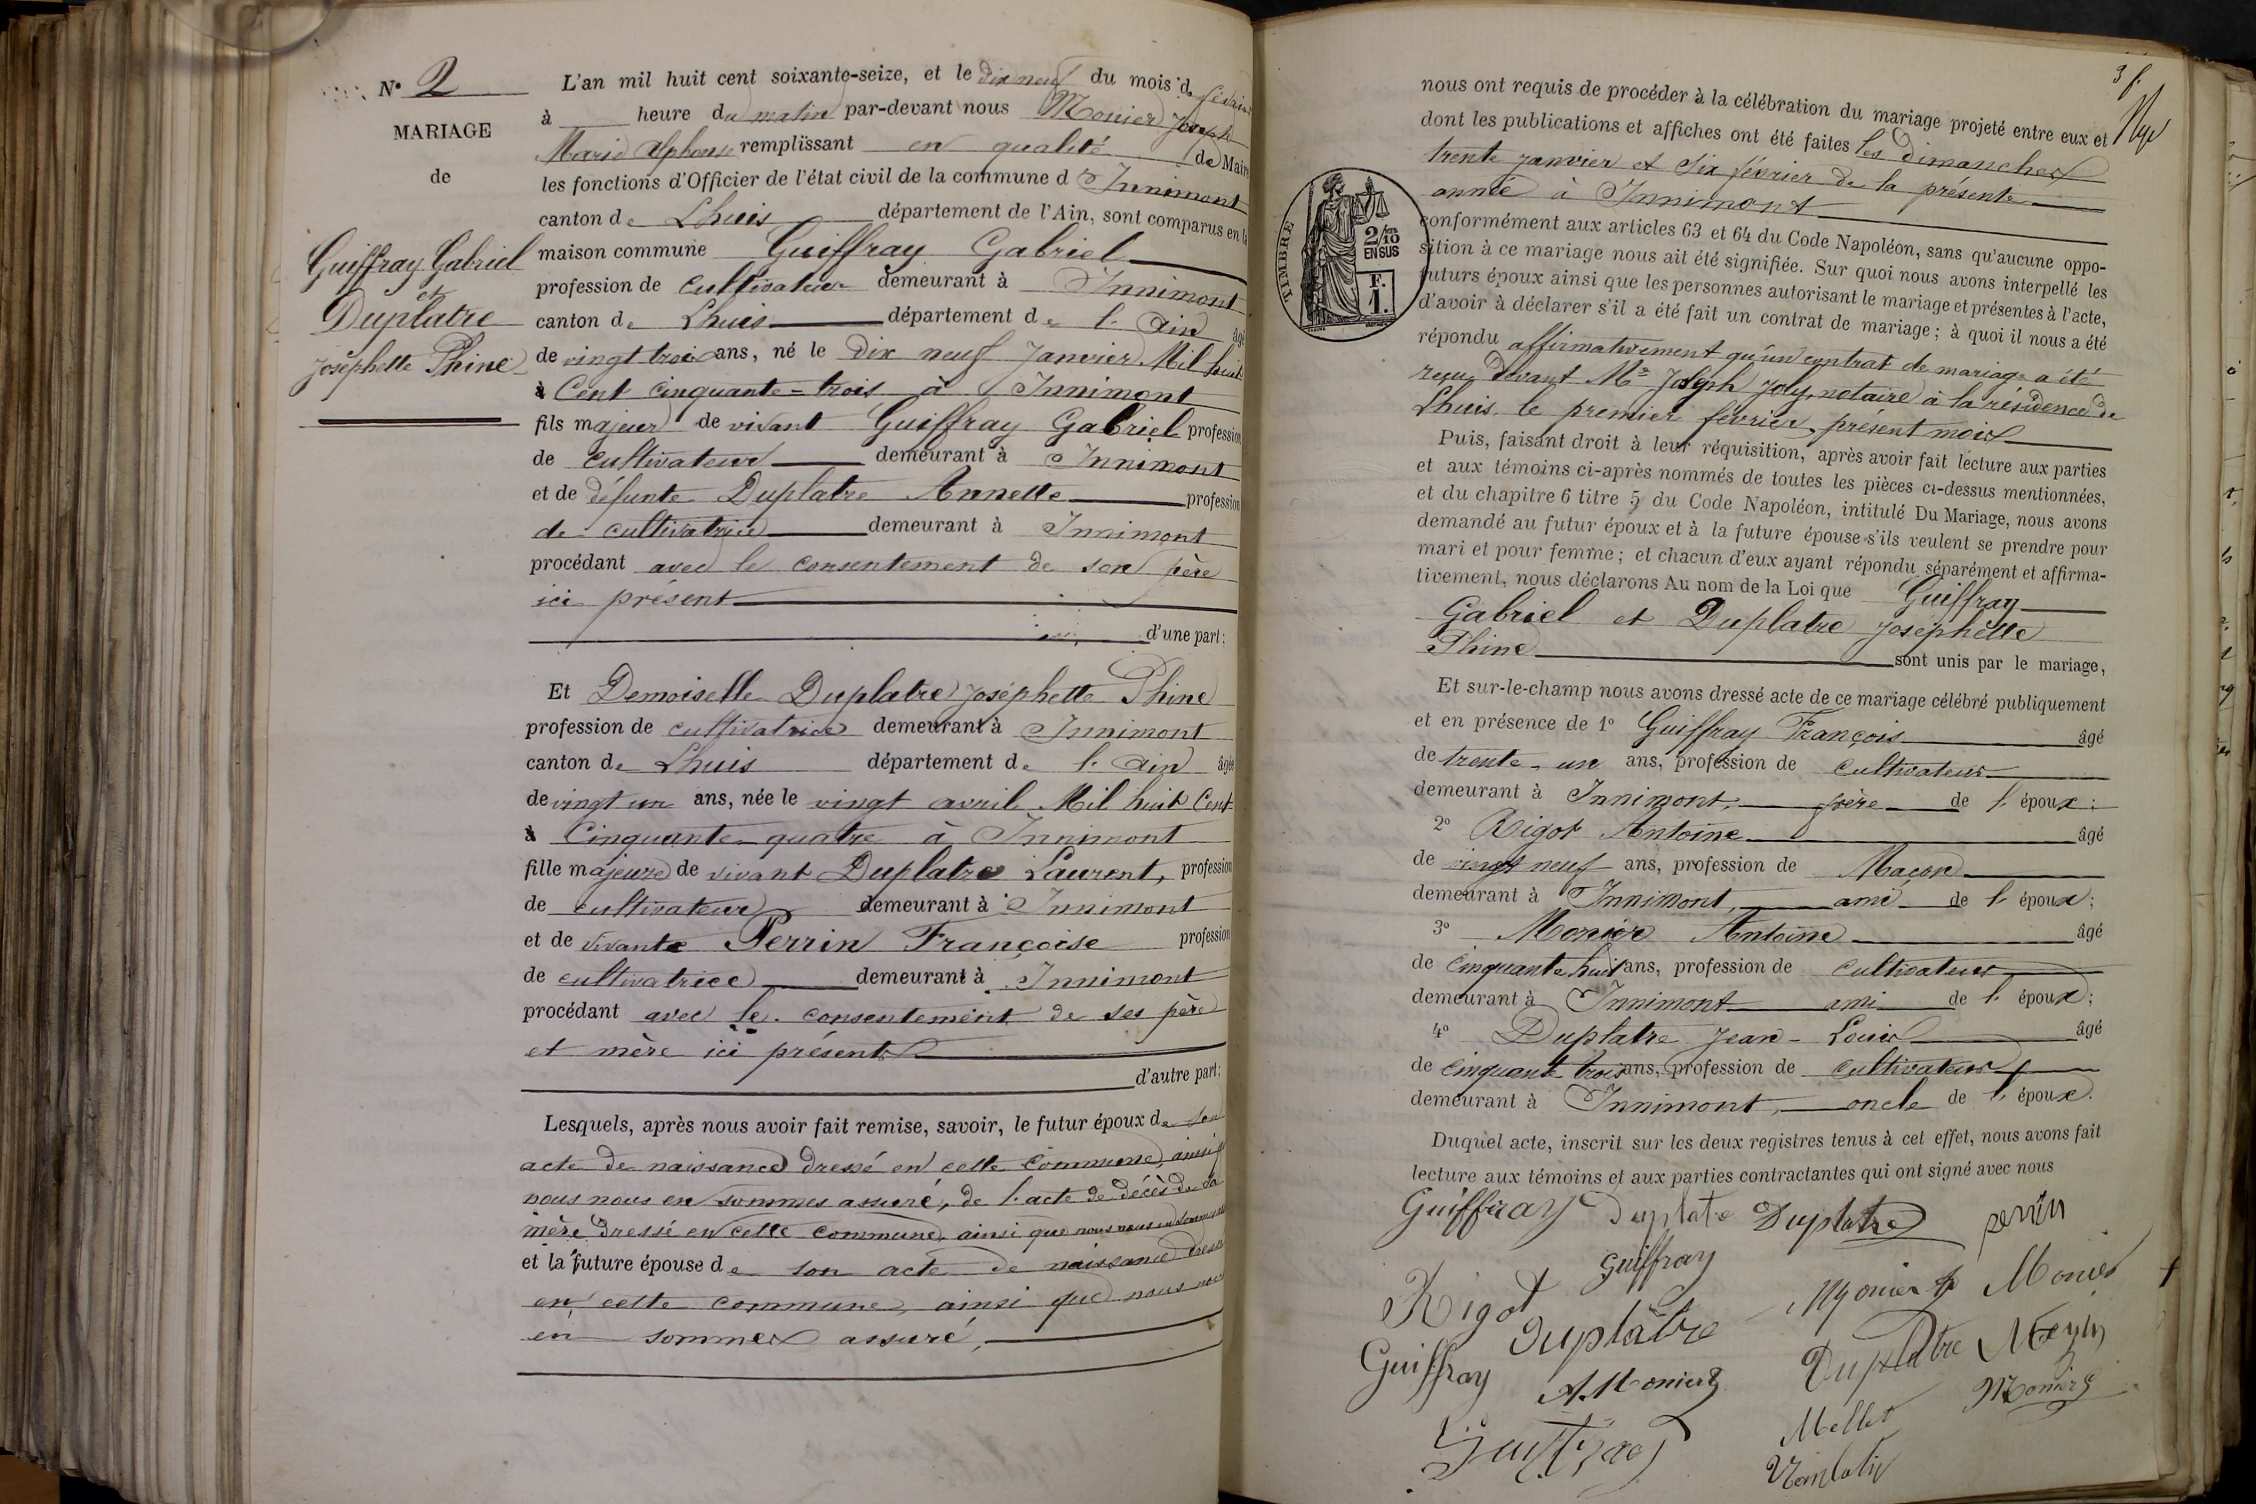 N° 2
MARIAGE
de
Guiffray Gabriel
et
Duplatre
Joséphette Phine
L'an mil huit cent soixante-seize, et le dix neuf du mois de février
à heure du matin par-devant nous Monier Joseph
Marie Alphonse remplissant en qualité de Maire
les fonctions d'Officier de l'état civil de la commune d Innimont
canton de Lhuis département de l'Ain, sont comparus en la
maison commune Guiffray Gabriel
profession de cultivateur demeurant à Innimont
canton de Lhuis département de l'Ain âgé
de vingt trois ans, né le dix neuf Janvier Mil huit
à Cent cinquante-trois à Innimont
fils majeur de vivant Guiffray Gabriel profession
de cultivateur demeurant à Innimont
et de défunte Duplatre Annette profession
de cultivatrice demeurant à Innimont
procédant avec le consentement de son père
ici présent
d'une part;
Et Demoiselle Duplatre Joséphette Phine
profession de cultivatrice demeurant à Innimont
canton de Lhuis département de l'Ain âgée
de vingt un ans, née le vingt avril Mil huit Cent
à Cinquante-quatre à Innimont
fille majeure de vivant Duplatre Laurent, profession
de cultivateur demeurant à Innimont
et de vivante Perrin Françoise profession
de cultivatrice demeurant à Innimont
procédant avec le consentement de ses père
et mère ici présents
d'autre part;
Lesquels, après nous avoir fait remise, savoir, le futur époux de son
acte de naissance dressé en cette commune, ainsi q
nous nous en sommes assuré, de l'acte de décès de sa
mère dressé en cette commune, ainsi que nous nous en sommes
et la future épouse de son acte de naissance dressé
en cette commune, ainsi que nous nous
en sommes assuré,
3 f.
nous ont requis de procéder à la célébration du mariage projeté entre eux et
dont les publications et affiches ont été faites les dimanches
trente janvier et six février de la présente
année à Innimont
conformément aux articles 63 et 64 du Code Napoléon, sans qu'aucune oppo-
sition à ce mariage nous ait été signifiée. Sur quoi nous avons interpellé les
futurs époux ainsi que les personnes autorisant le mariage et présentes à l'acte,
d'avoir à déclarer s'il a été fait un contrat de mariage; à quoi il nous a été
répondu affirmativement qu'un contrat de mariage a été
reçu devant Me Joseph Joly, notaire à la résidence de
Lhuis le premier février, présent mois
TIMBRE
2/10
EN SUS
F.
1.
Puis, faisant droit à leur réquisition, après avoir fait lecture aux parties
et aux témoins ci-après nommés de toutes les pièces ci-dessus mentionnées,
et du chapitre 6 titre 5 du Code Napoléon, intitulé Du Mariage, nous avons
demandé au futur époux et à la future épouse s'ils veulent se prendre pour
mari et pour femme; et chacun d'eux ayant répondu séparément et affirma-
tivement, nous déclarons Au nom de la Loi que Guiffray
Gabriel et Duplatre Joséphette
Phine sont unis par le mariage,
Et sur-le-champ nous avons dressé acte de ce mariage célébré publiquement
et en présence de 1° Guiffray François âgé
de trente-un ans, profession de cultivateur
demeurant à Innimont, frère de l'époux;
2° Rigot Antoine âgé
de vingt neuf ans, profession de Maçon
demeurant à Innimont, ami de l'époux;
3° Monier Antoine âgé
de cinquante huit ans, profession de cultivateur
demeurant à Innimont ami de l'époux;
4° Duplatre Jean-Louis âgé
de cinquante trois ans, profession de cultivateur
demeurant à Innimont, oncle de l'époux.
Duquel acte, inscrit sur les deux registres tenus à cet effet, nous avons fait
lecture aux témoins et aux parties contractantes qui ont signé avec nous
Guiffray Duplatre Duplatre perrin
Guiffray
Rigot Monier Monier
Duplâtre
Guiffray Duplatre
A. Monier Monier
Mellet
Guiffray